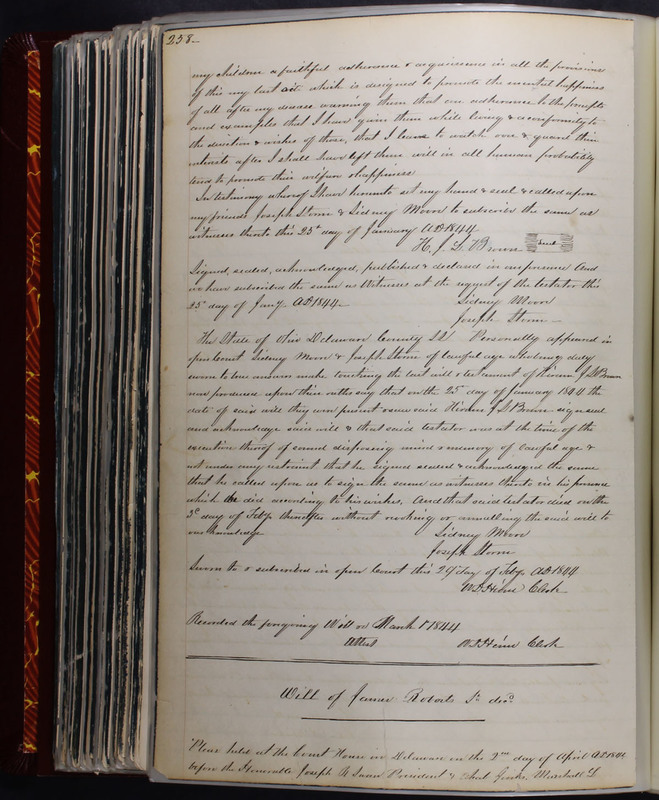 258-
my children a faithful adherence & acquiescence in all the provisions
of this my last act which is designed to promote the mental happiness
of all after my decease warning them that an adherence to the precepts
and examples that I have given them while living & a conformity to
the direction & wishes of those, that I leave to watch over & guard their
interests after I shall have left them will in all human probability
tend to promote their welfare & happiness
In testimony whereof I have hereunto set my hand & seal & called upon
my friends Joseph Storm & Sidney Moore to subscribe the same as
witnesses thereto this 25th day of January AD 1844
H. J. L. Brown Seal
Signed, sealed, acknowledged, published & declared in our presence And
we have subscribed the same as Witnesses at the request of the testator this
25th day of Jany AD 1844-
Sidney Moore
Joseph Storm-
The State of Ohio Delaware County SS Personally appeared in
open Court Sidney Moore & Joseph Storm of lawful age who being duly
sworn to true answers make touching the last will & testament of Hiram J L Brown
now produced upon their oaths say that on the 25th day of January 1844 the
date of said will they were present & saw said Hiram J L Brown sign seal
and acknowledge said will & that said testator was at the time of the
execution thereof of sound disposing mind & memory of lawful age &
not under any restraint that he signed sealed & acknowledged the same
that he called upon us to sign the same as witnesses thereto in his presence
which we did according to his wishes. And that said testator died on the
3d day of Feby thereafter without revoking or annulling the said will to
our knowledge
Sidney Moore
Joseph Storm
Sworn to & subscribed in open Court this 29 day of Feby AD 1844
W D Heim Clerk
Recorded the foregoing Will on March 1 1844
Attest W D Heim Clerk
Will of James Roberts Sr decd
Pleas held at the Court House in Delaware on the 2nd day of April AD 1844
before the Honorable Joseph R Swan President & that Marshall L